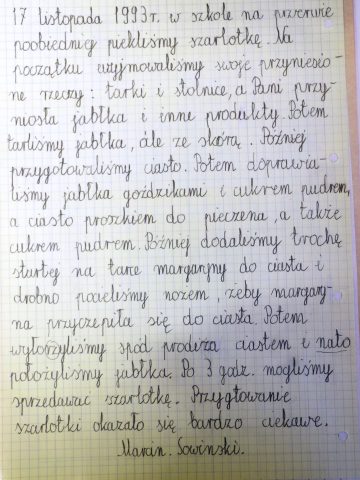 17 listopada 1993r. w szkole na przerwie
poobiedniej piekliśmy szarlotkę. Na
początku wyjmowaliśmy swoje przyniesio-
ne rzeczy: tarki i stolnice, a Pani przy-
niosła jabłka i inne produkty. Potem
tarliśmy jabłka, ale ze skórą. Później
przygotowaliśmy ciasto. Potem doprawia-
liśmy jabłka goździkami i cukrem pudrem,
a ciasto proszkiem do pieczena, a także
cukrem pudrem. Później dodaliśmy trochę
startej na tarce margaryny do ciasta i
drobno pocieliśmy nożem, żeby margary-
na przyczepiła się do ciasta. Potem
wyłorzyliśmy spód prodiża ciastem i nato
położyliśmy jabłka. Po 3 godz. mogliśmy
sprzedawać szarlotkę. Przygtowanie
szarlotki okazało się bardzo ciekawe.
Marcin. Sowinski.